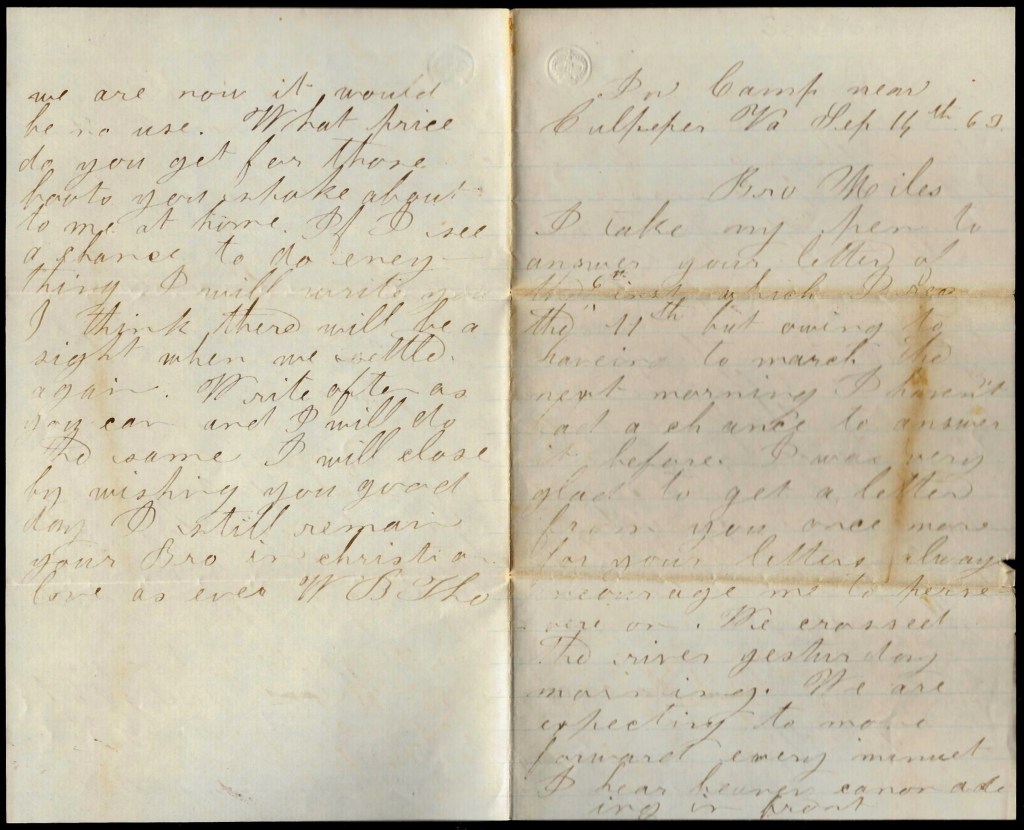 we are now it would
be no use. What price
do you get for those
boots you spoke about
to me at home. If I see
a chance to do eney
thing I will write you
I think there will be a
sight when we settle
again. Write often as
you can and I will do
the same I will close
by wishing you good
day I still remain
your Bro in christian
love as ever W B Tho
In Camp near
Culpeper Va Sep 14th 63.
Bro Miles
I take my pen to
answer your letter of
the 6 inst which I
the 11th but owing to
haveing to march the
next morning I haven't
had a chance to answer
it before. I was very
glad to get a letter
from you once more
for your letters always
encourage me to perse
vere on. We crossed
the river yesturday
morning. We are
expecting to move
forward every minuet
I hear heavy canonade
ing in front